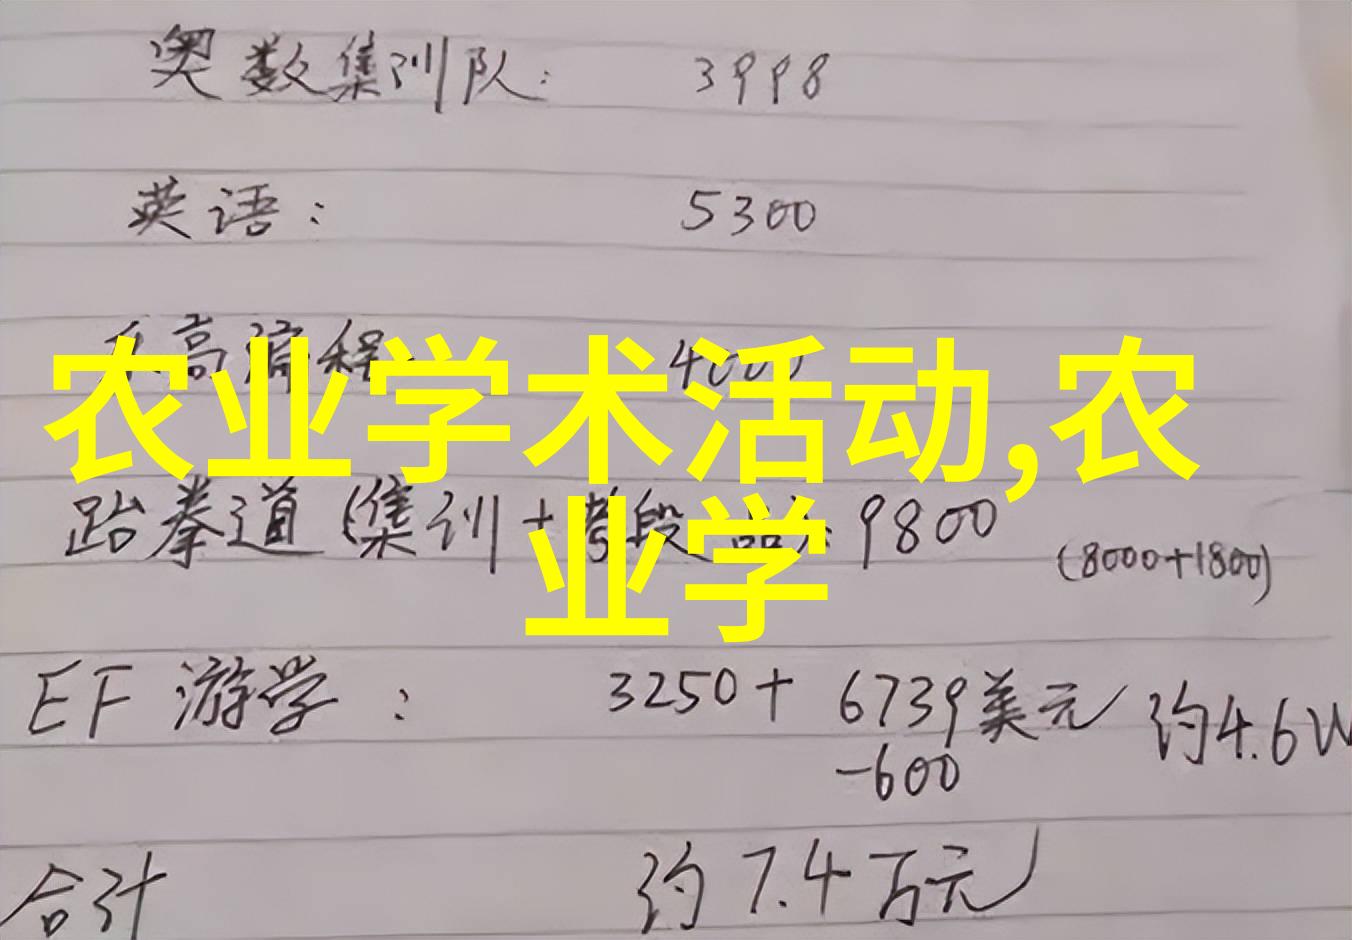 奥数集训队: 3998
英语: 5300
高编程 4000
农业学术活动,农
业学
跆拳道(集训+考段 9800
(8000+1800)
EF 游学: 3250+6739美元 约4.6W
-600
合计 约7.4万元